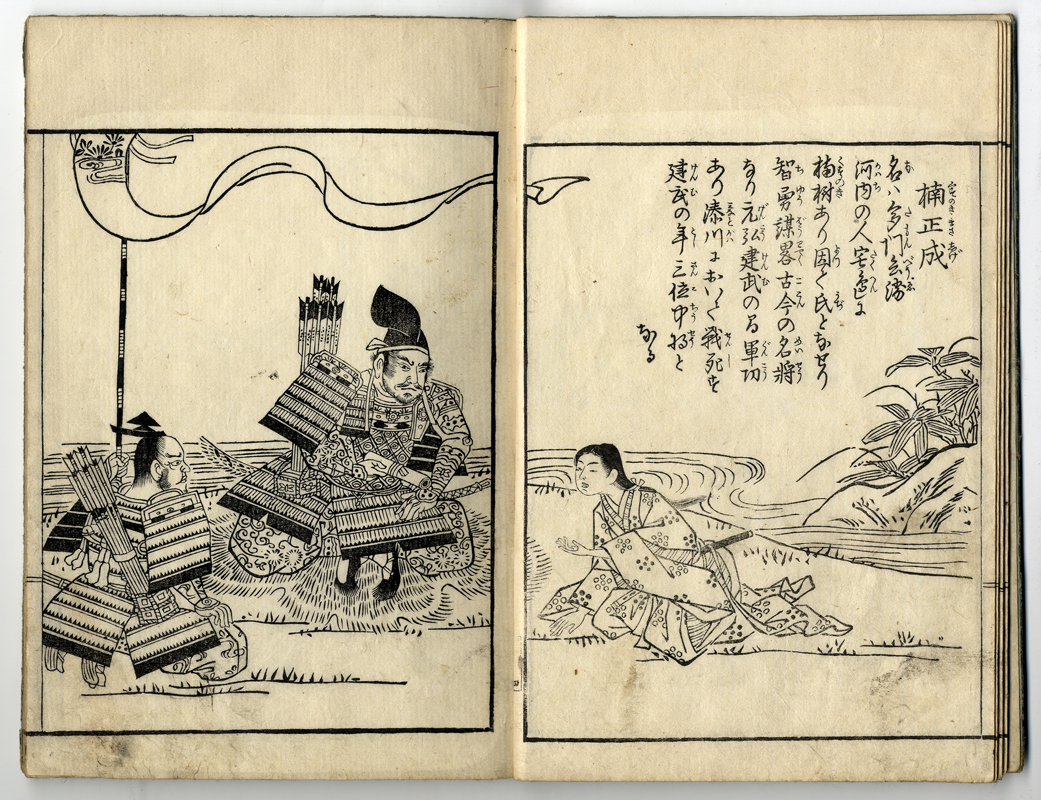 楠正成
名ハ多門兵衛
河内の人宅邊に
楠樹あり因て氏となせり
智勇謀畧古今の名将
なり元弘建武の間軍功
あり湊川において戦死す
建武の年三位中将と
なる